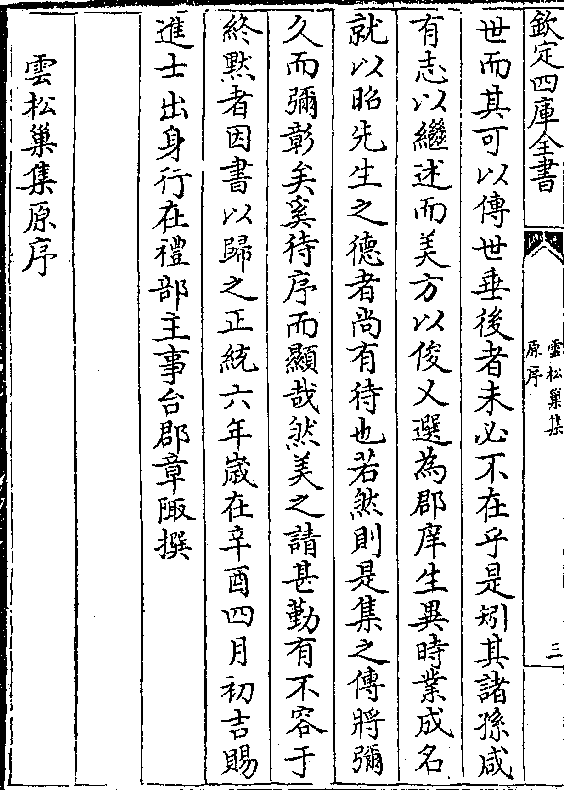 欽定四庫全書
雲松巢集
原序
三
世而其可以傳世垂後者未必不在乎是矧其諸孫咸
有志以繼述而美方以俊乂選為郡庠生異時業成名
就以昭先生之德者尚有待也若然則是集之傳將彌
久而彌彰矣奚待序而顯哉然美之請甚勤有不容于
終黙者因書以歸之正統六年歳在辛酉四月初吉賜
進士出身行在禮部主事台郡章陬撰
雲松巢集原序